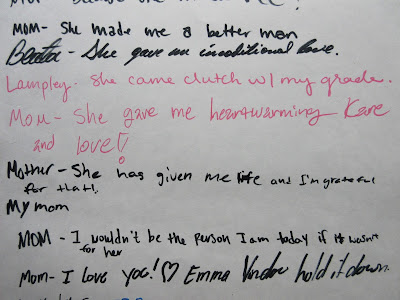 MOM- She made me a better man
She gave me unconditional love.
Lampley. She came clutch w/ my grade.
Mom- She gave me heartwarming Kare
and love!
Mother- She has given me life and I'm grateful
for that!
My mom
MOM - I wouldn't be the person I am today if it wasn't
for her
Mom- I love you! ♡ Emma hold it down.